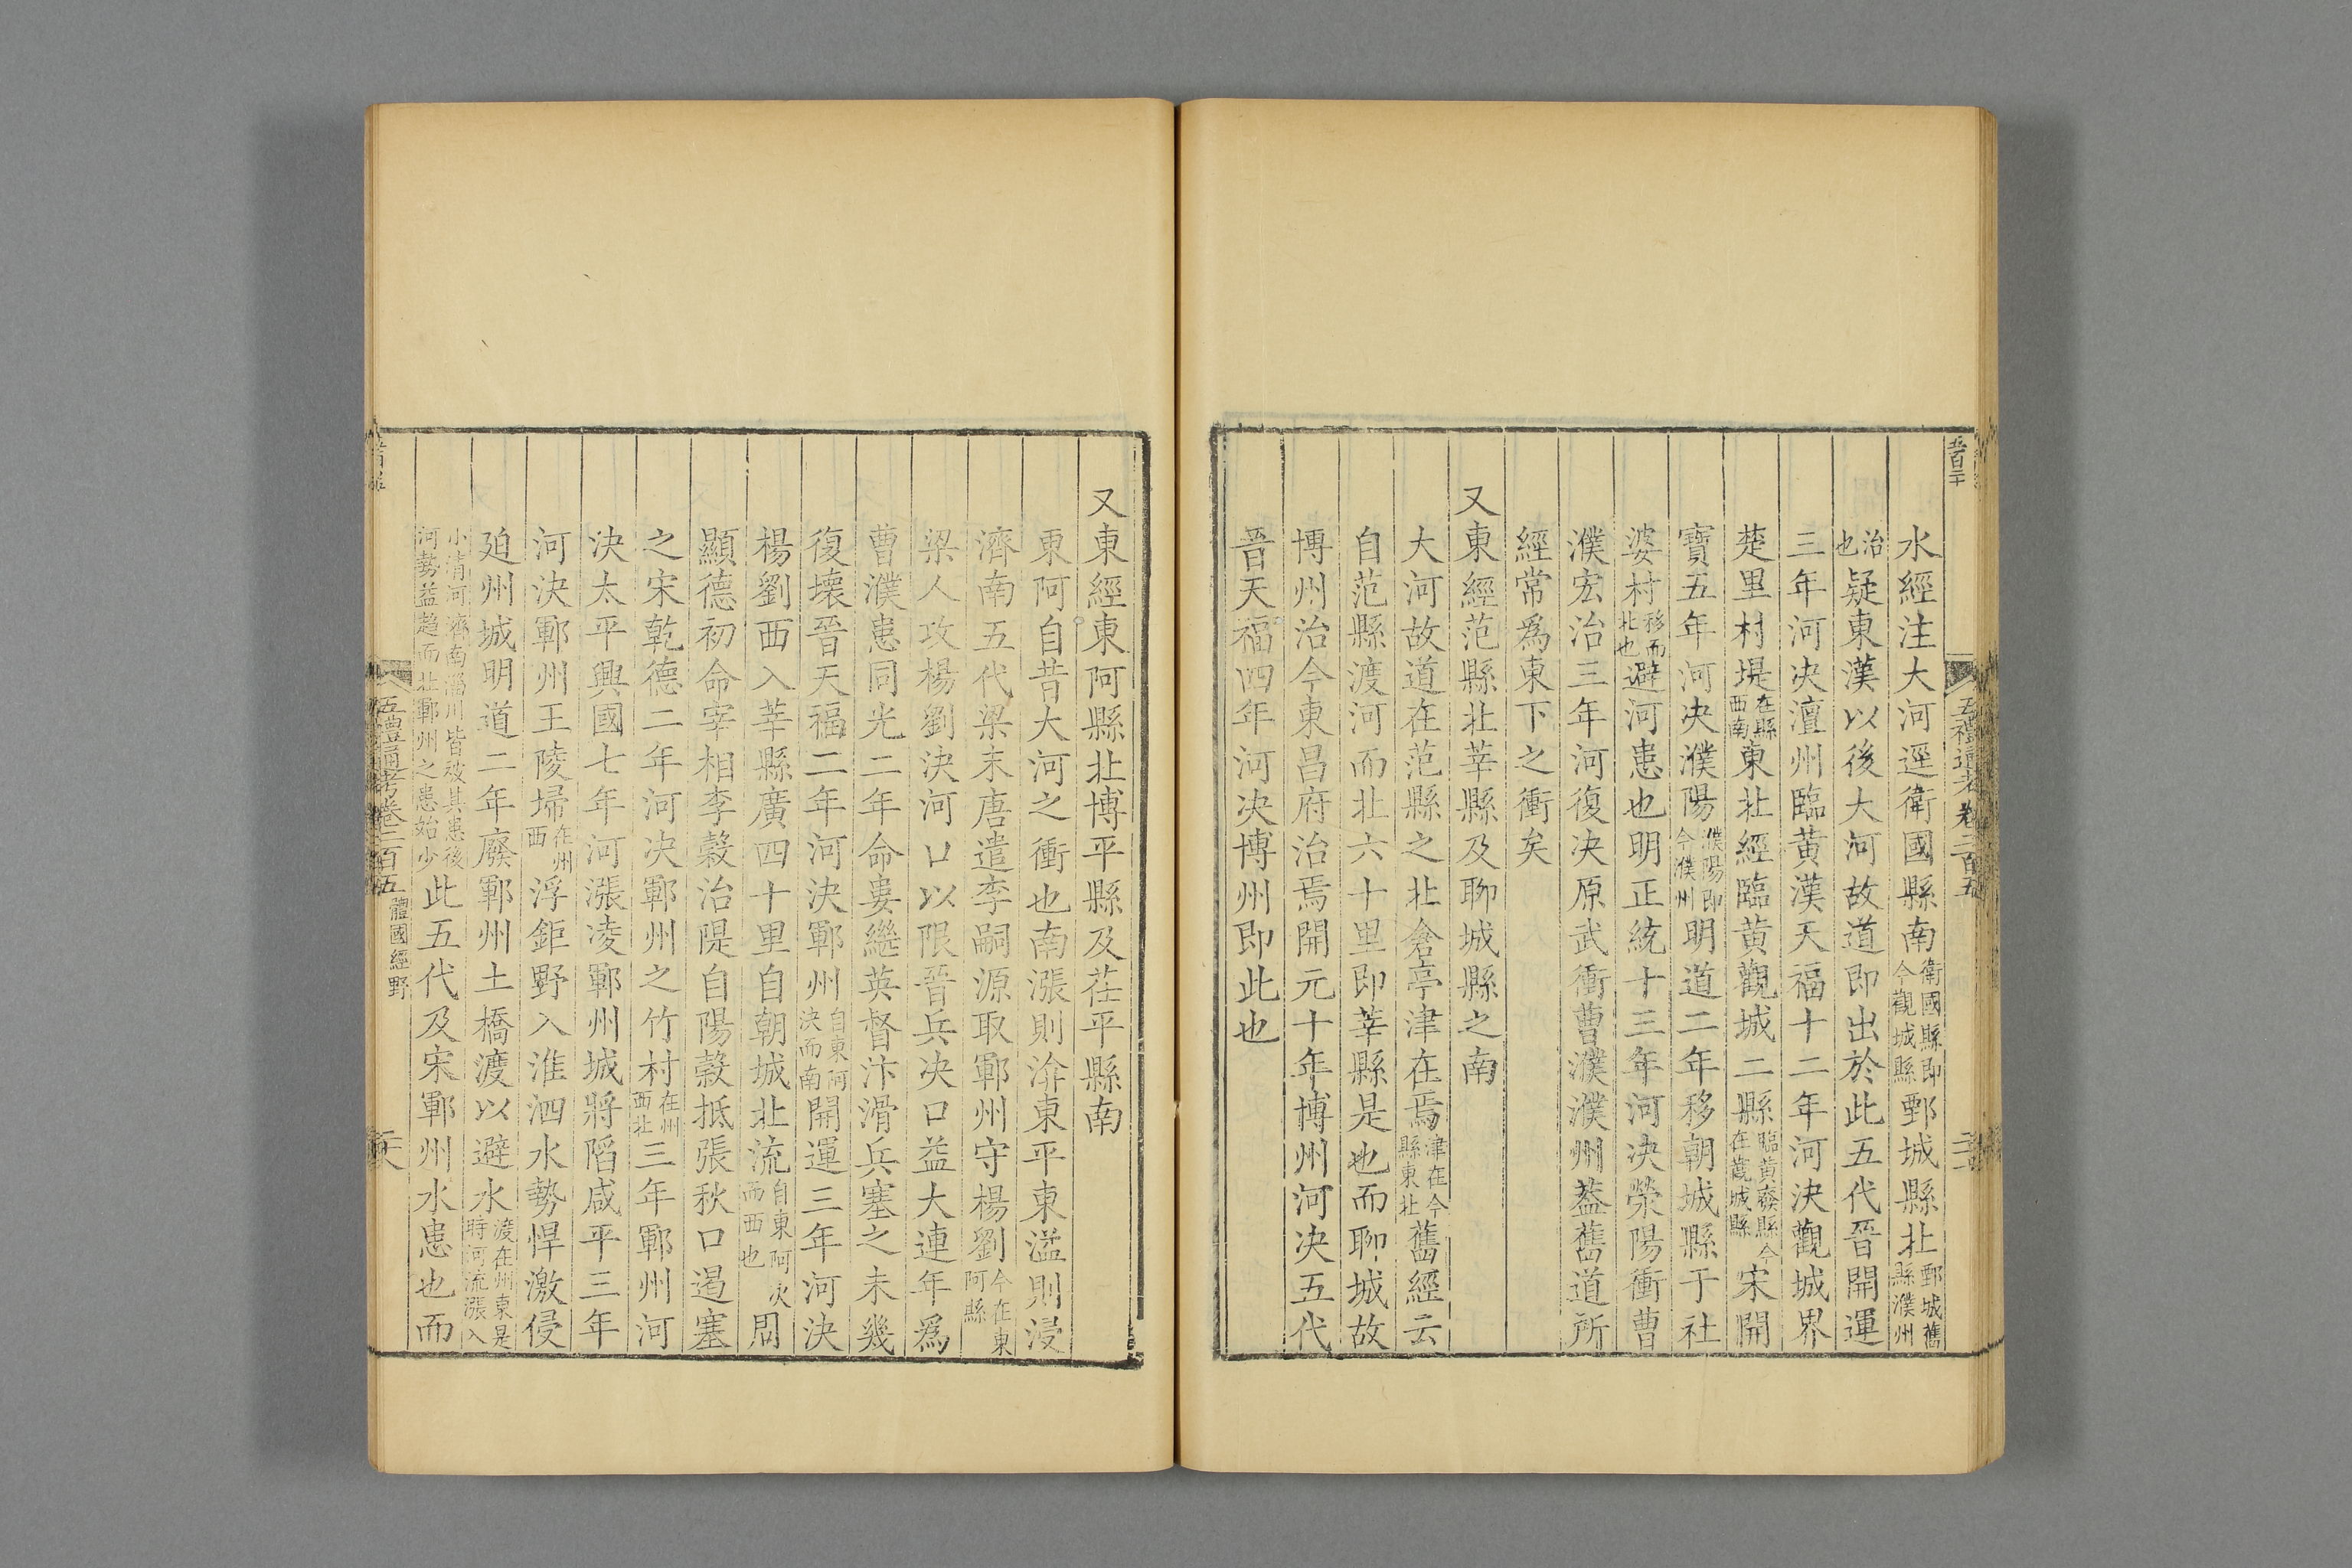 五百二十
五禮通考卷二百五
水經注大河逕衛國縣南衛國縣即今觀城縣鄄城縣北鄄城舊縣濮州
治也疑東漢以後大河故道即出於此五代晉開運
三年河決澶州臨黃漢天福十二年河決觀城界
楚里村堤在縣西南東北經臨黃觀城二縣臨黃廢縣今在觀城縣宋開
寶五年河決濮陽濮陽即今濮州明道二年移朝城縣于社
婆村移而北也避河患也明正統十三年河決滎陽衝曹
濮宏治三年河復決原武衝曹濮濮州蓋舊道所
經常爲東下之衝矣
又東經范縣北莘縣及聊城縣之南
大河故道在范縣之北倉亭津在焉津在今縣東北舊經云
自范縣渡河而北六十里即莘縣是也而聊城故
博州治今東昌府治焉開元十年博州河決五代
晉天福四年河決博州即此也
又東經東阿縣北博平縣及茌平縣南
東阿自昔大河之衝也南漲則洊東平東溢則浸
濟南五代梁末唐遣李嗣源取鄆州守楊劉今在東阿縣
梁人攻楊劉決河口以限晉兵決口益大連年爲
曹濮患同光二年命婁繼英督汴滑兵塞之未幾
復壞晉天福二年河決鄆州自東阿決而南開運三年河決
楊劉西入莘縣廣四十里自朝城北流自東阿次而西也周
顯德初命宰相李穀治隄自陽穀抵張秋口遏塞
之宋乾德二年河決鄆州之竹村在州西北三年鄆州河
決太平興國七年河漲凌鄆州城將陷咸平三年
河決鄆州王陵埽在州西浮鉅野入淮泗水勢悍激侵
廹州城明道二年廢鄆州土橋渡以避水渡在州東是時河流漲入
小清河濟南淄川皆被其患後河勢益趨而北鄆州之患始少此五代及宋鄆州水患也而
五禮通考卷二百五 體國經野